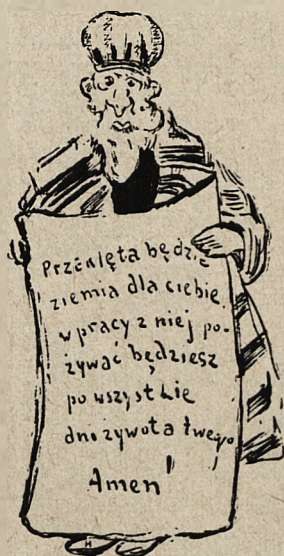 Przeklęta będzie
ziemia dla ciebie,
w pracy z niej po-
żywać będziesz
po wszystkie
dni żywota twego
Amen!